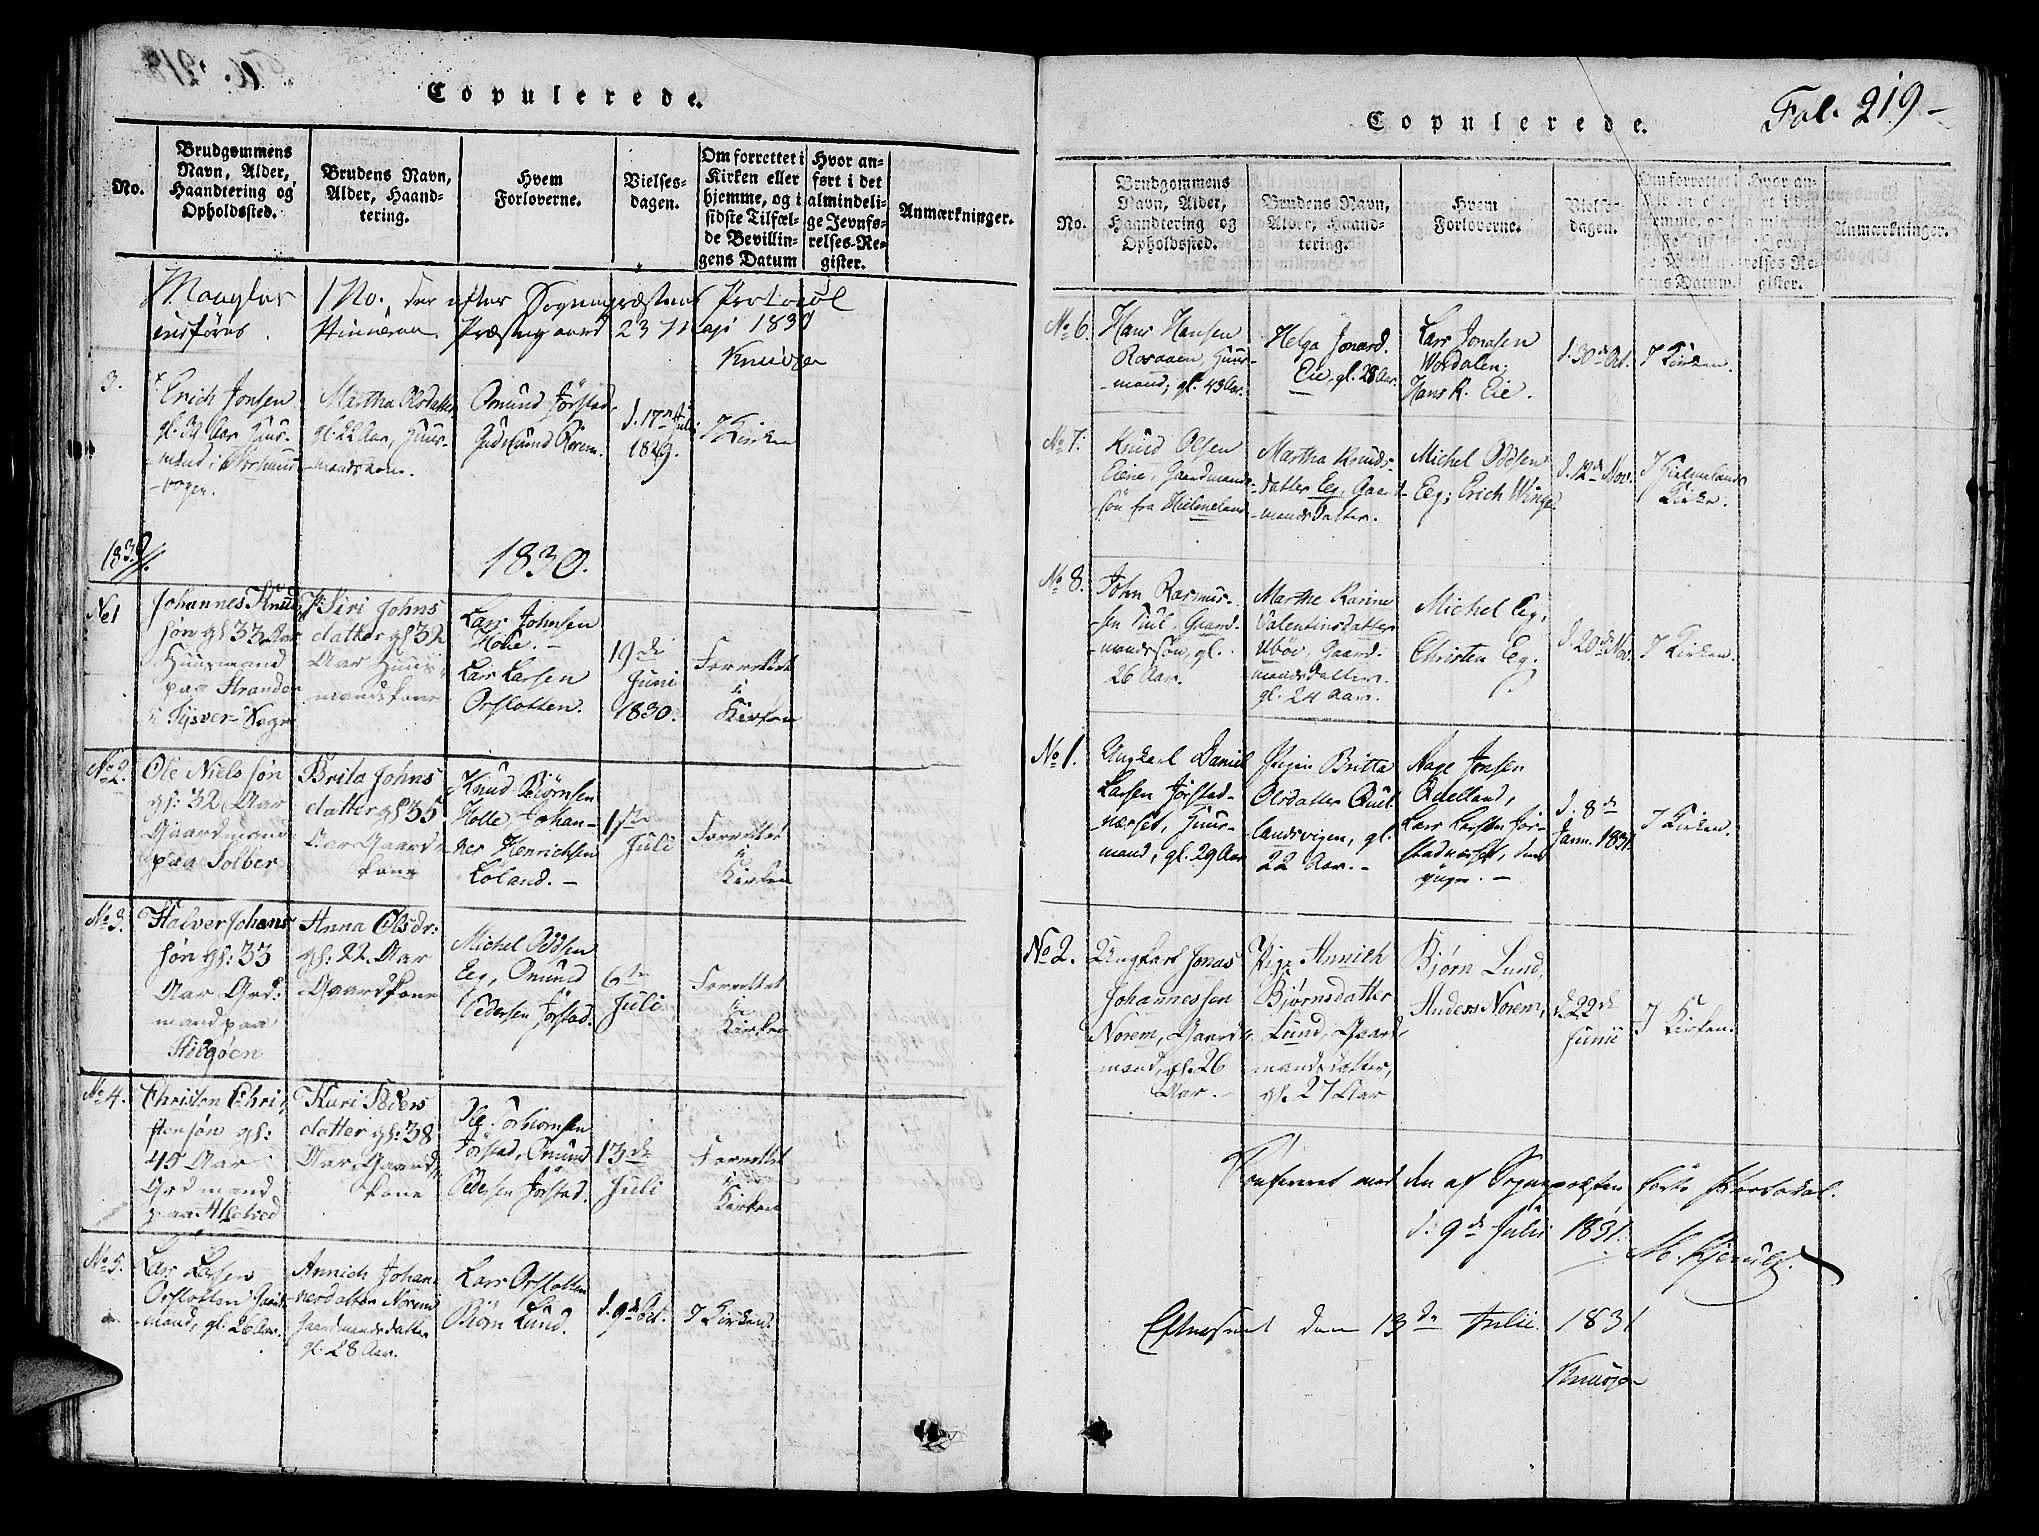 Copulerede.
No.
Brudgommens
Navn, Alder,
Haandtering og
Opholdssted.
Brudens Navn,
Alder, Haand-
tering.
Hvem
Forloverne.
Vielses-
dagen.
Om forrettet i
Kirken eller
hjemme, og i
sidste Tilfæl-
de Bevillin-
gens Datum
Hvor an-
ført i det
almindeli-
ge Jevnfø-
relses-Re-
gister.
Anmærkninger.
Mangler 1 No. der efter Sognepræstens Protocol
indføres. Præstegaard 1830
3.
Erich Jonsen
gl. Aar Huus-
mand i
vogen.
Martha Olsdatter
gl. 22 Aar, Huus-
mandskone.
Omund Jørstad,
Gudmund
d. 17 Juli
1829.
I Kirken
1830.
No 1
Johannes Knud
søn gl 33 Aar
Huusmand
paa Stranden
i Tysver-Sogn
Siri Johns
datter gl 32
Aar Huus-
mandskone
Lars Johnsen
Holle. -
Lars Larsen
Orslotten.
19de
Juni
1830.
Forrettet
i
Kirken
No 2.
Ole Nielssøn
gl: 32 Aar
Gaardmand
paa Solber
Brita Johns
datter gl 35
Aar Gaard-
kone
Knud Biørnsen
Holle Johan-
nes Henrichsen
Løland. -
1ste
Juli
Forrettet
i
Kirken
No 3.
Halver Johans
søn gl: 33
Aar Grd:
mand paa
Helgøen
Anna Olsdr:
gl: 22 Aar
Gaardkone
Michel Oddsen
Eeg, Omund
Pedersen Jørstad.
6te
Juli
Forrettet
i
Kirken
No 4.
Christen Chri-
stensøn gl:
45 Aar
Grdmand
paa
Kari Peders
datter gl: 38
Aar, Gaard-
kone
Torbiørnsen
Jørstad, Omund
Pedersen Jørstad.
13de
Juli
Forrettet
i
Kirken
No 5.
Lars Larsen
Orslotten Gaard-
mand, gl. 26 Aar.
Annich Johan-
nesdatter Norem
Gaardmandsdatter
gl. 28 Aar.
Lars Orslotten
Biørn Lund.
d. 9de Oct.
I Kirken.
Fol. 219-
Copulerede.
No.
Brudgommens
Navn, Alder,
Haandtering og
Opholdssted.
Brudens Navn,
Alder, Haand-
tering.
Hvem
Forloverne.
Vielse-
dagen.
Om forrettet i
gens Datum.
Hvor an-
relses-Re-
gister.
Anmærkninger.
No 6.
Hans Hansen
Rosaaen, Huus-
mand, gl. 43 Aar.
Helga Jonasd.
Eie, gl. 28 Aar.
Lars Jonasen
Wordalen,
Hans K. Eie.
d. 30de Oct.
I Kirken.
No 7.
Knud Olsen
Eiene, Gaardmands-
søn fra Hielmeland
Martha Knuds-
datter Eeg, Gaard-
mandsdatter.
Michel Oddsen
Eeg; Erich Winge
d. 12de Nov.
I Hielmelands
Kirke.
No 8.
John Rasmus-
sen Tuul, Gaard-
mandssøn, gl.
26 Aar.
Marthe Karine
Valentinsdatter
Ubøe, Gaard-
mandsdatter.
gl. 24 Aar.
Michel Eeg,
Christen Eeg.
d. 20de Nov.
I Kirken.
No 1.
Ungkarl Daniel
Larsen Jørstad-
næset, Huus-
mand, gl. 29 Aar
Pigen Britta
Olsdatter Quel-
landsvigen, gl.
22 Aar. -
Aage Jonsen
Quelland,
Lars Larsen Jør-
stadnæset,
d. 8de
Jann. 1831.
I Kirken.
No 2.
Ungkarl Jonas
Johannessen
Norem, Gaard-
mand, gl. 26
Aar. -
Pige Annich
Bjørnsdatter
Lund, Gaard-
mandsdatter,
gl. 27 Aar
Bjørn Lund,
Anders Norem,
d. 22de
Junii
I Kirken.
Confereret med den af Sognepræsten førte Protokol.
d. 9de Julii 1831.
Efterseet den 13de Julii 1831